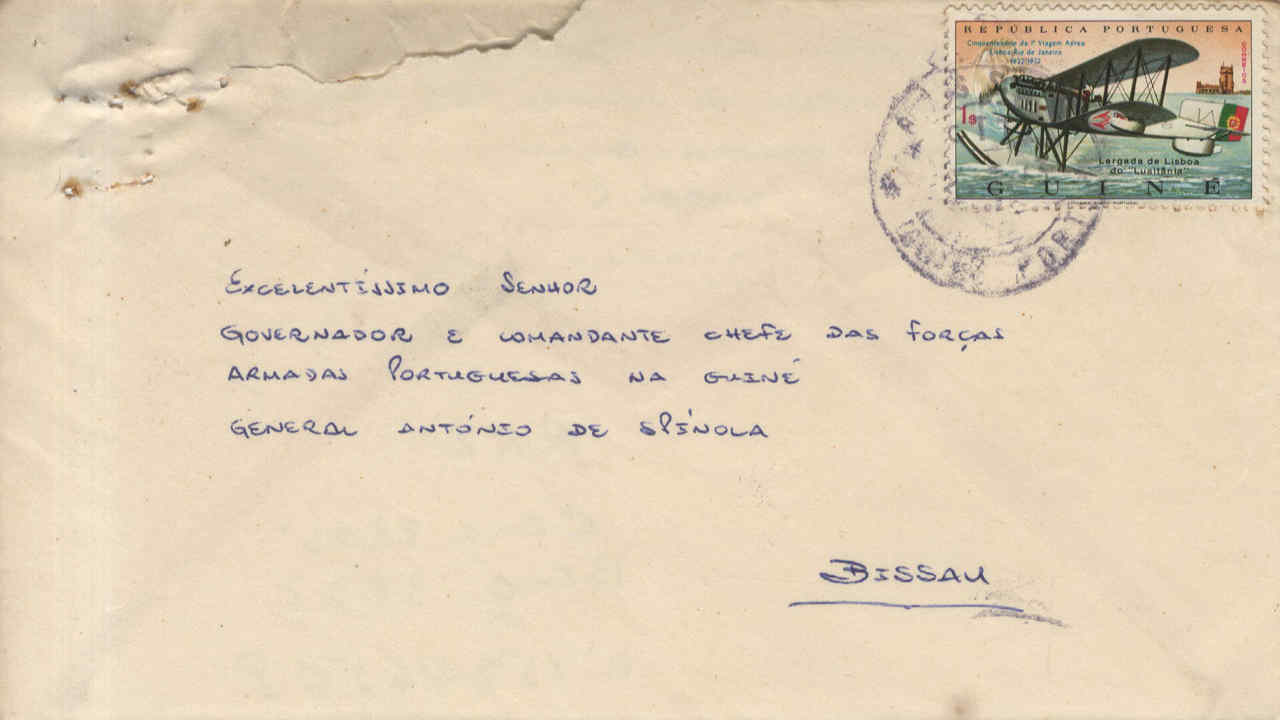 REPÚBLICA PORTUGUESA
Cinquentenário da 1ª Viagem Aérea
Lisboa-Rio de Janeiro
1922-1972
CORREIOS
1$
Largada de Lisboa
do "Lusitânia"
GUINÉ
PORT
EXCELENTÍSSIMO SENHOR
GOVERNADOR E COMANDANTE CHEFE DAS FORÇAS
ARMADAS PORTUGUESAS NA GUINÉ
GENERAL ANTÓNIO DE SPÍNOLA
BISSAU